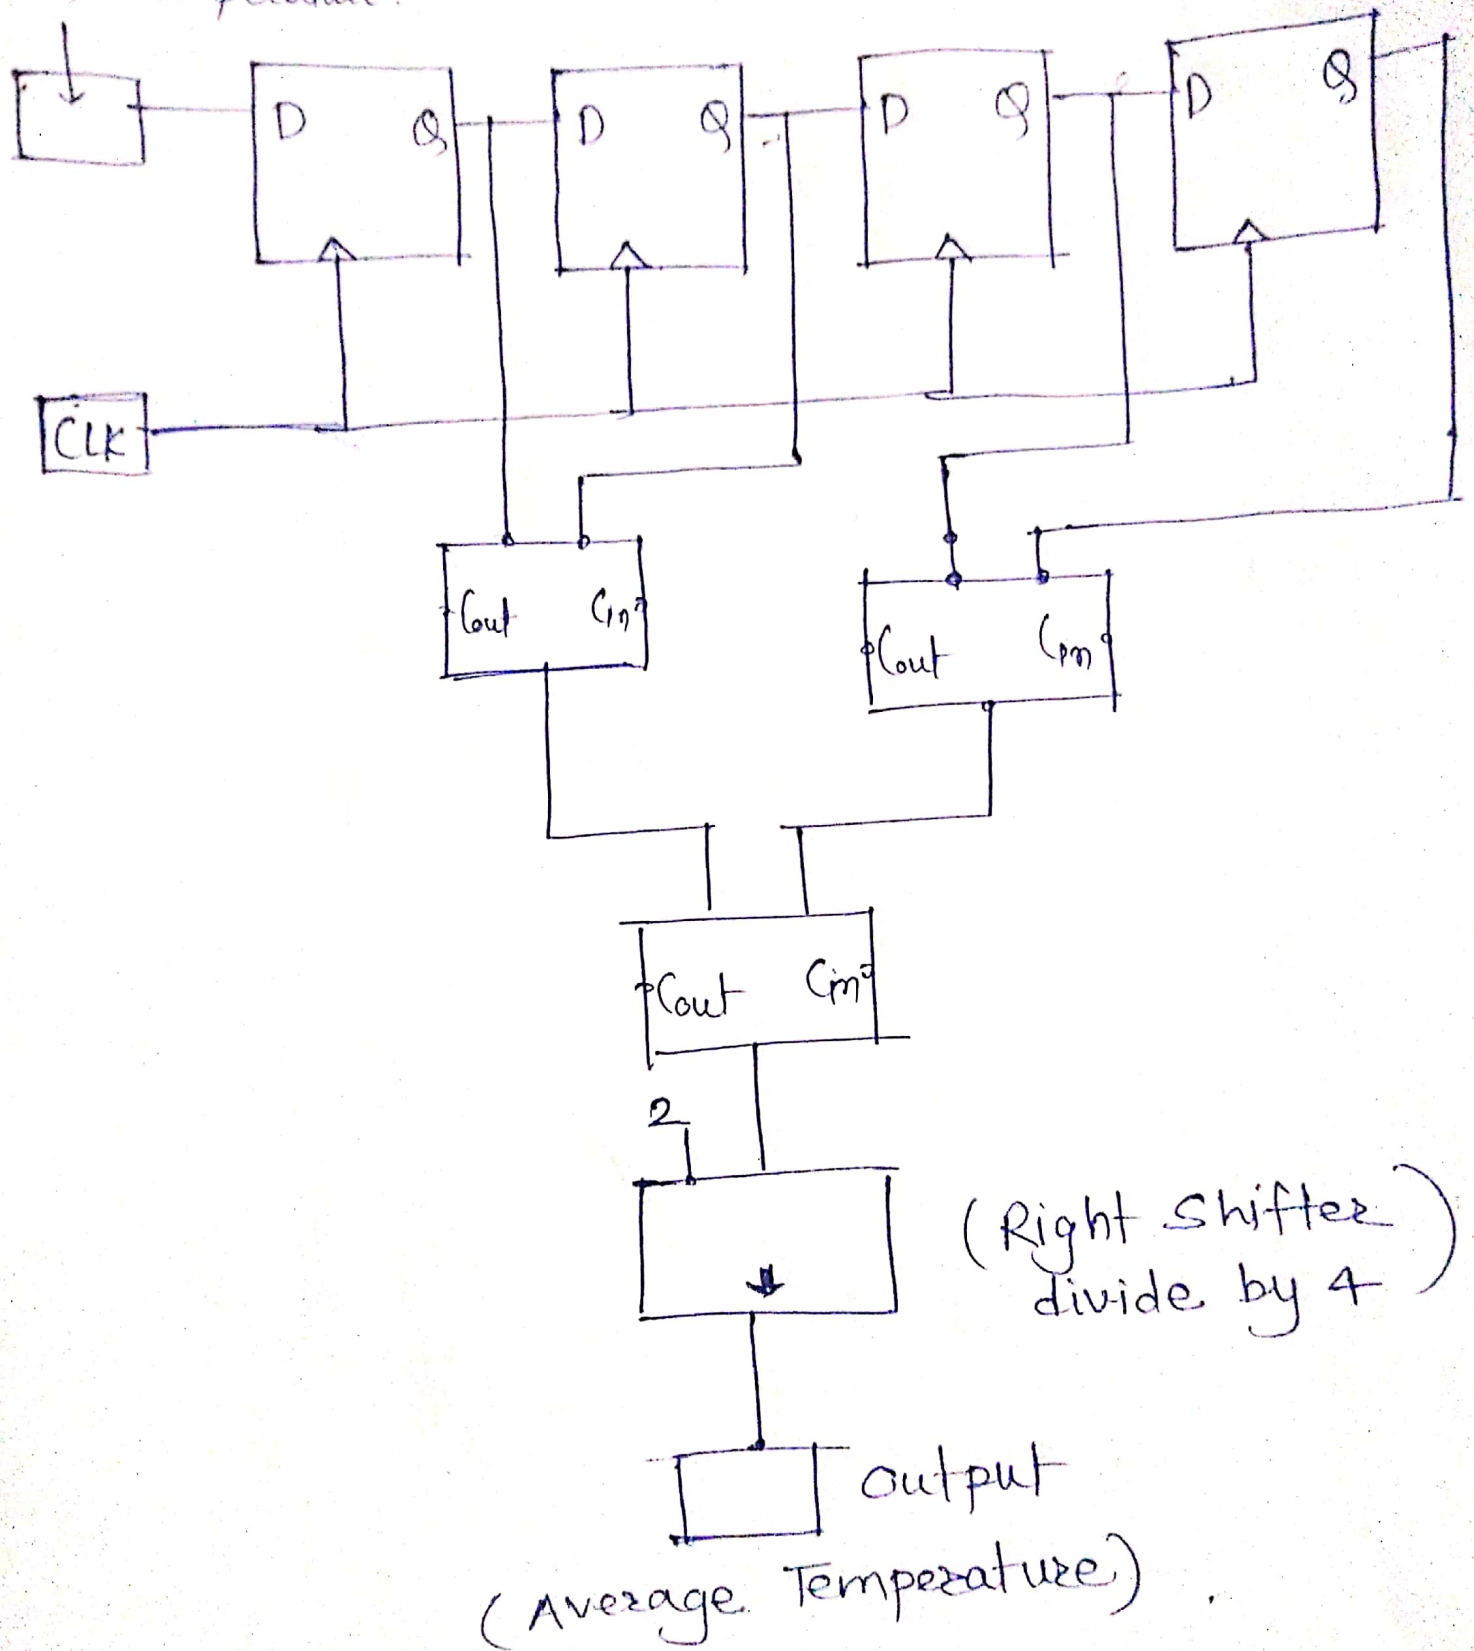 D Q D Q D Q D Q
CLK
Cout Cin
Cout Cin
Cout Cin
2
(Right Shifter)
divide by 4
output
(Average Temperature).